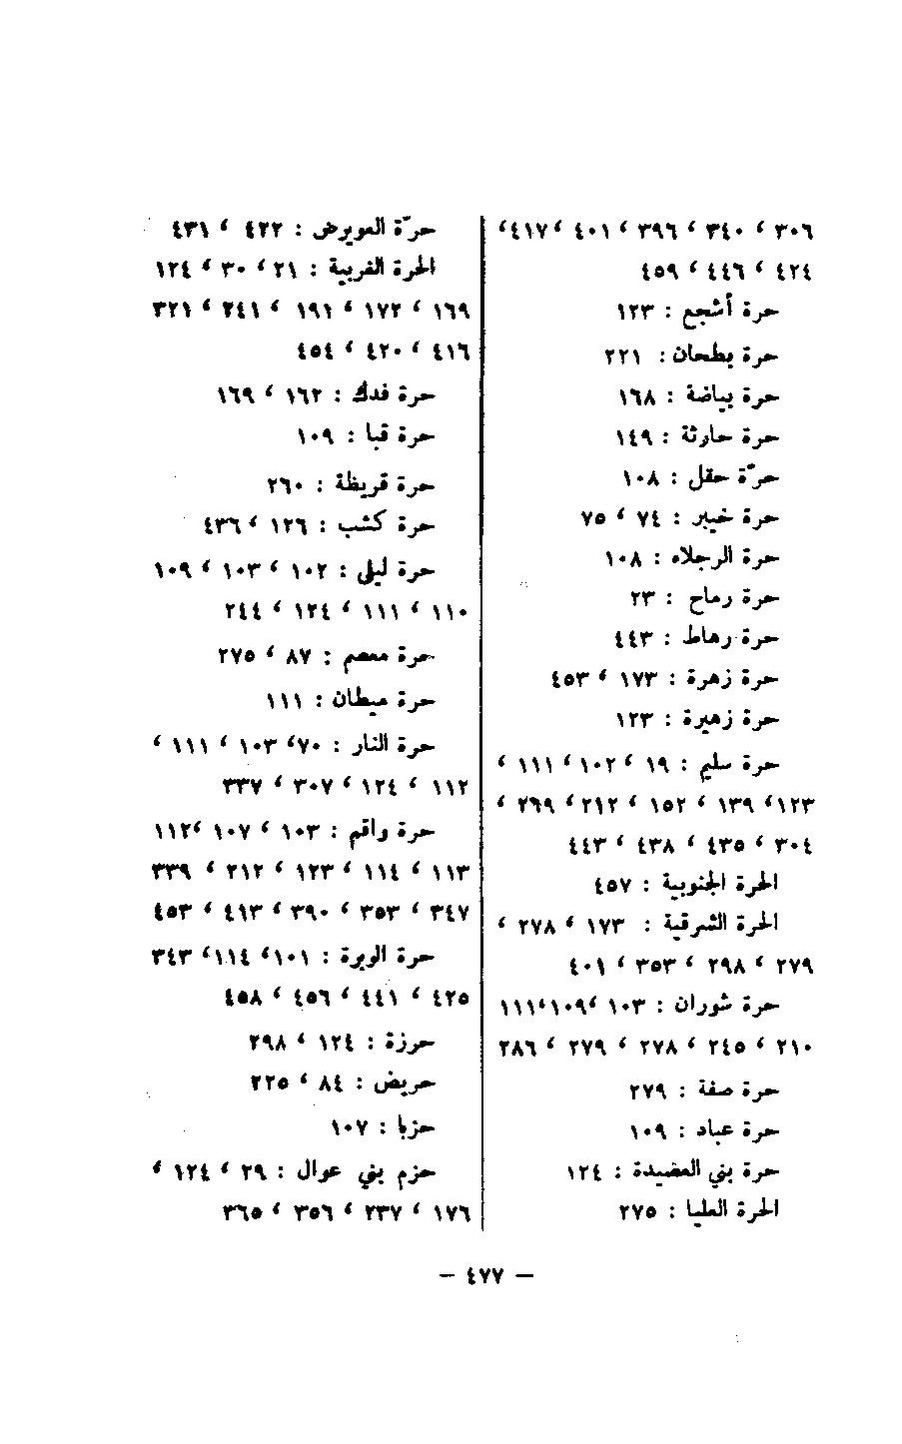 ٣٠٦ ، ٣٤٠ ، ٣٩٦ ، ٤٠١ ، ٤١٧،
٤٢٤ ، ٤٤٦ ، ٤٥٩
حرة أشجع : ١٢٣
حرة بطحان : ٢٢١
حرة بياضة : ١٦٨
حرة حارثة : ١٤٩
حرّة حقل : ١٠٨
حرة خيبر : ٧٤ ، ٧٥
حرة الرجلاء : ١٠٨
حرة رماح : ٢٣
حرة رهاط : ٤٤٣
حرة زهرة : ١٧٣ ، ٤٥٣
حرة زهيرة : ١٢٣
حرة سليم : ١٩ ، ١٠٢ ، ١١١ ،
١٢٣، ١٣٩ ، ١٥٢ ، ٢١٢ ، ٢٦٩ ،
٣٠٤ ، ٤٣٥ ، ٤٣٨ ، ٤٤٣
الحرة الجنوبية : ٤٥٧
الحرة الشرقية : ١٧٣ ، ٢٧٨ ،
٢٧٩ ، ٢٩٨ ، ٣٥٣ ، ٤٠١
حرة شوران : ١٠٣ ،١٠٩،١١١
٢١٠ ، ٢٤٥ ، ٢٧٨ ، ٢٧٩ ، ٢٨٦
حرة صفة : ٢٧٩
حرة عباد : ١٠٩
حرة بني العضيدة : ١٢٤
الحرة العليا : ٢٧٥
حرّة العويرض : ٤٢٢ ، ٤٣١
الحرة الغربية : ٢١ ، ٣٠ ، ١٢٤
١٦٩ ، ١٧٢ ، ١٩١ ، ٢٤١ ، ٣٢١
٤١٦ ، ٤٢٠ ، ٤٥٤
حرة فدك : ١٦٢ ، ١٦٩
حرة قبا : ١٠٩
حرة قريظة : ٢٦٠
حرة كشب : ١٢٦ ، ٤٣٦
حرة ليلى : ١٠٢ ، ١٠٣ ، ١٠٩
١١٠ ، ١١١ ، ١٢٤ ، ٢٤٤
حرة معصم : ٨٧ ، ٢٧٥
حرة ميطان : ١١١
حرة النار : ٧٠، ١٠٣ ، ١١١ ،
١١٢ ، ١٢٤ ، ٣٠٧ ، ٣٣٧
حرة واقم : ١٠٣ ، ١٠٧ ،١١٢
١١٣ ، ١١٤ ، ١٢٣ ، ٢١٢ ، ٣٣٩
٣٤٧ ، ٣٥٣ ، ٣٩٠ ، ٤١٣ ، ٤٥٣
حرة الوبرة : ١٠١، ١١٤، ٣٤٣
٤٢٥ ، ٤٤١ ، ٤٥٦ ، ٤٥٨
حرزة : ١٢٤ ، ٢٩٨
حريض : ٨٤ ، ٢٢٥
حزبا : ١٠٧
حزم بني عوال : ٢٩ ، ١٢٤ ،
١٧٦ ، ٢٣٧ ، ٣٥٦ ، ٣٦٥
— ٤٧٧ —